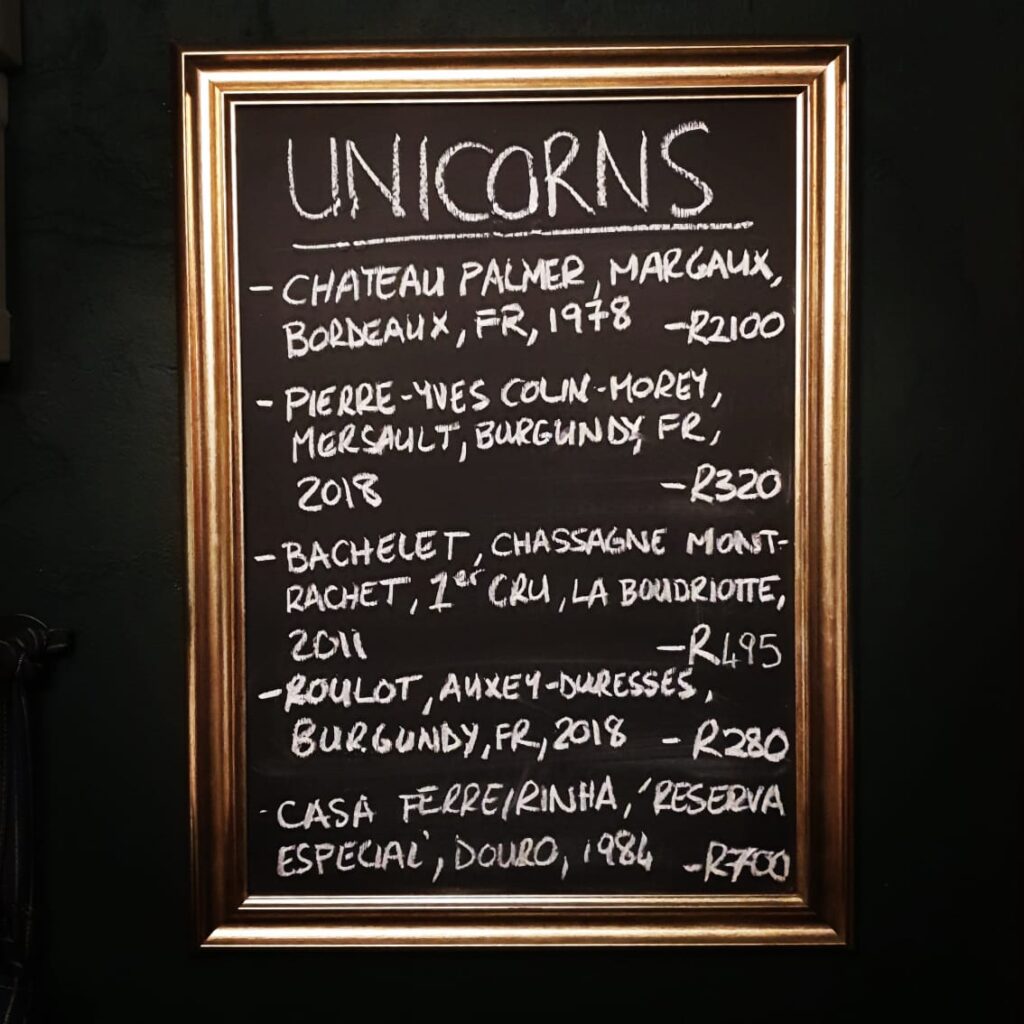 UNICORNS
- CHATEAU PALMER, MARGAUX,
BORDEAUX, FR, 1978 -R2100
- PIERRE-YVES COLIN-MOREY,
MERSAULT, BURGUNDY, FR,
2018 -R320
- BACHELET, CHASSAGNE MONT-
RACHET, 1er CRU, LA BOUDRIOTTE,
2011 -R495
- ROULOT, AUXEY-DURESSES,
BURGUNDY, FR, 2018 - R280
- CASA FERREIRINHA, 'RESERVA
ESPECIAL', DOURO, 1984 -R700